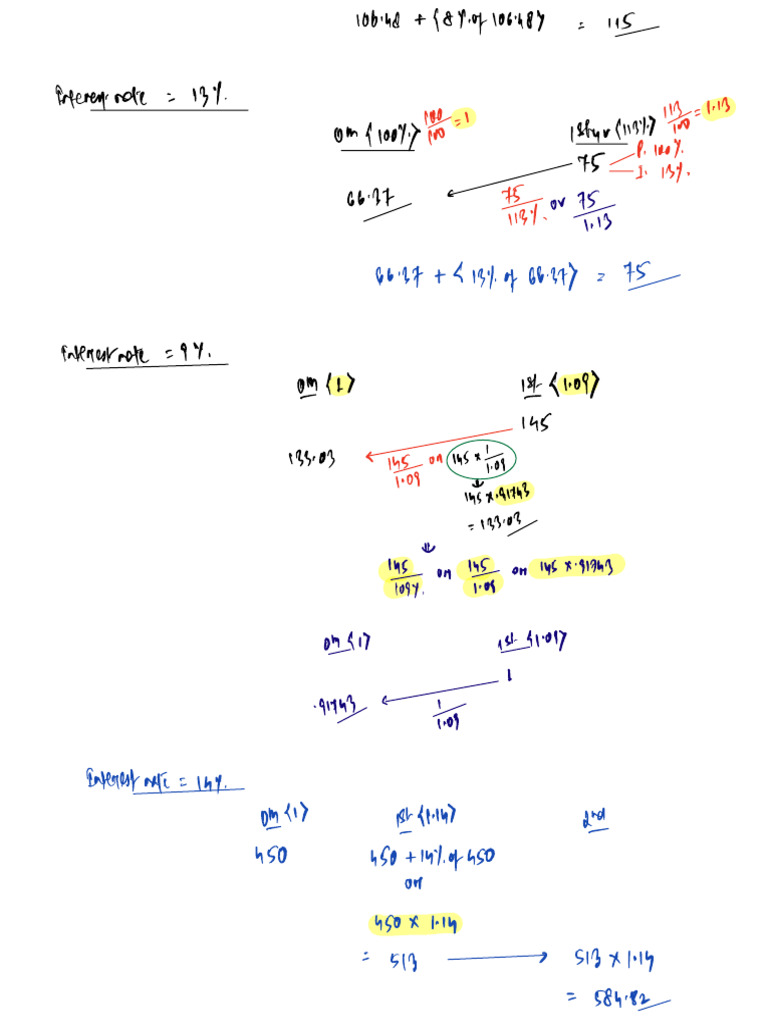 106.48 + {8% of 106.48} = 115
Interest rate = 13%.
0m {100%} 100/100 = 1
1st yr {113%} 113/100 = 1.13
75
P. 100%.
I. 13%.
66.37
75/113% or 75/1.13
66.37 + {13% of 66.37} = 75
Interest rate = 9%.
0m {1} 1st {1.09}
145
133.03
145/1.09 or 145 × 1/1.09
145 × .91743
= 133.03
145/109% or 145/1.09 or 145 × .91743
0m {1} 1st {1.09}
1
.91743
1/1.09
Interest rate = 14%.
0m {1} 1st {1.14} 2nd
450 450 + 14% of 450
or
450 × 1.14
= 513 513 × 1.14
= 584.82